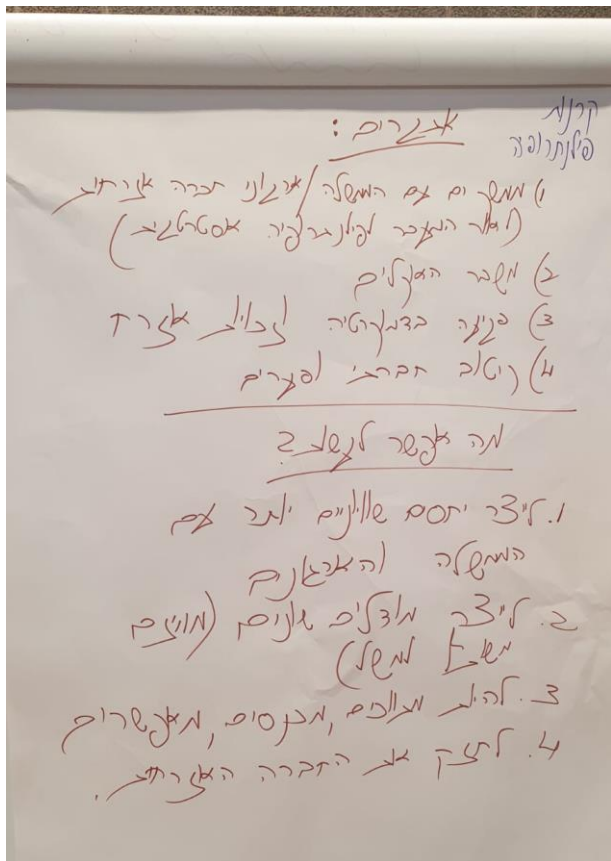 קרנות
פילנתרופיה
אתגרים:
1) ממשקים עם הממשלה/ארגוני חברה אזרחית
(לאור המעבר לפילנתרופיה אסטרטגית)
2) משבר האקלים
3) פגיעה בדמוקרטיה וזכויות אזרח
4) קיטוב חברתי ופערים
מה אפשר לעשות?
1. ליצר יחסם שוויוניים יותר עם
הממשלה והארגונים
2. ליצר מודלים שונים (מיזם
משותף למשל)
3. להיות מגוונים, מכנסים, מאפשרים
4. לחזק את החברה האזרחית.